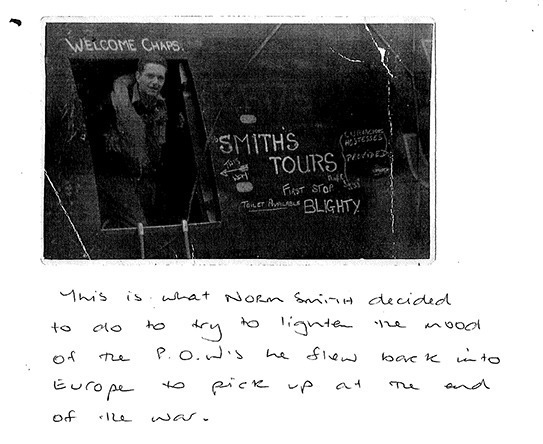 WELCOME CHAPS.
SMITH'S
TOURS
THIS
WAY
HOSTESSES
PROVIDED
FIRST STOP
TOILET AVAILABLE BLIGHTY
This is what NORM SMITH decided
to do to try to lighten the mood
of the P.O.W's he flew back into
Europe to pick up at the end
of the war.